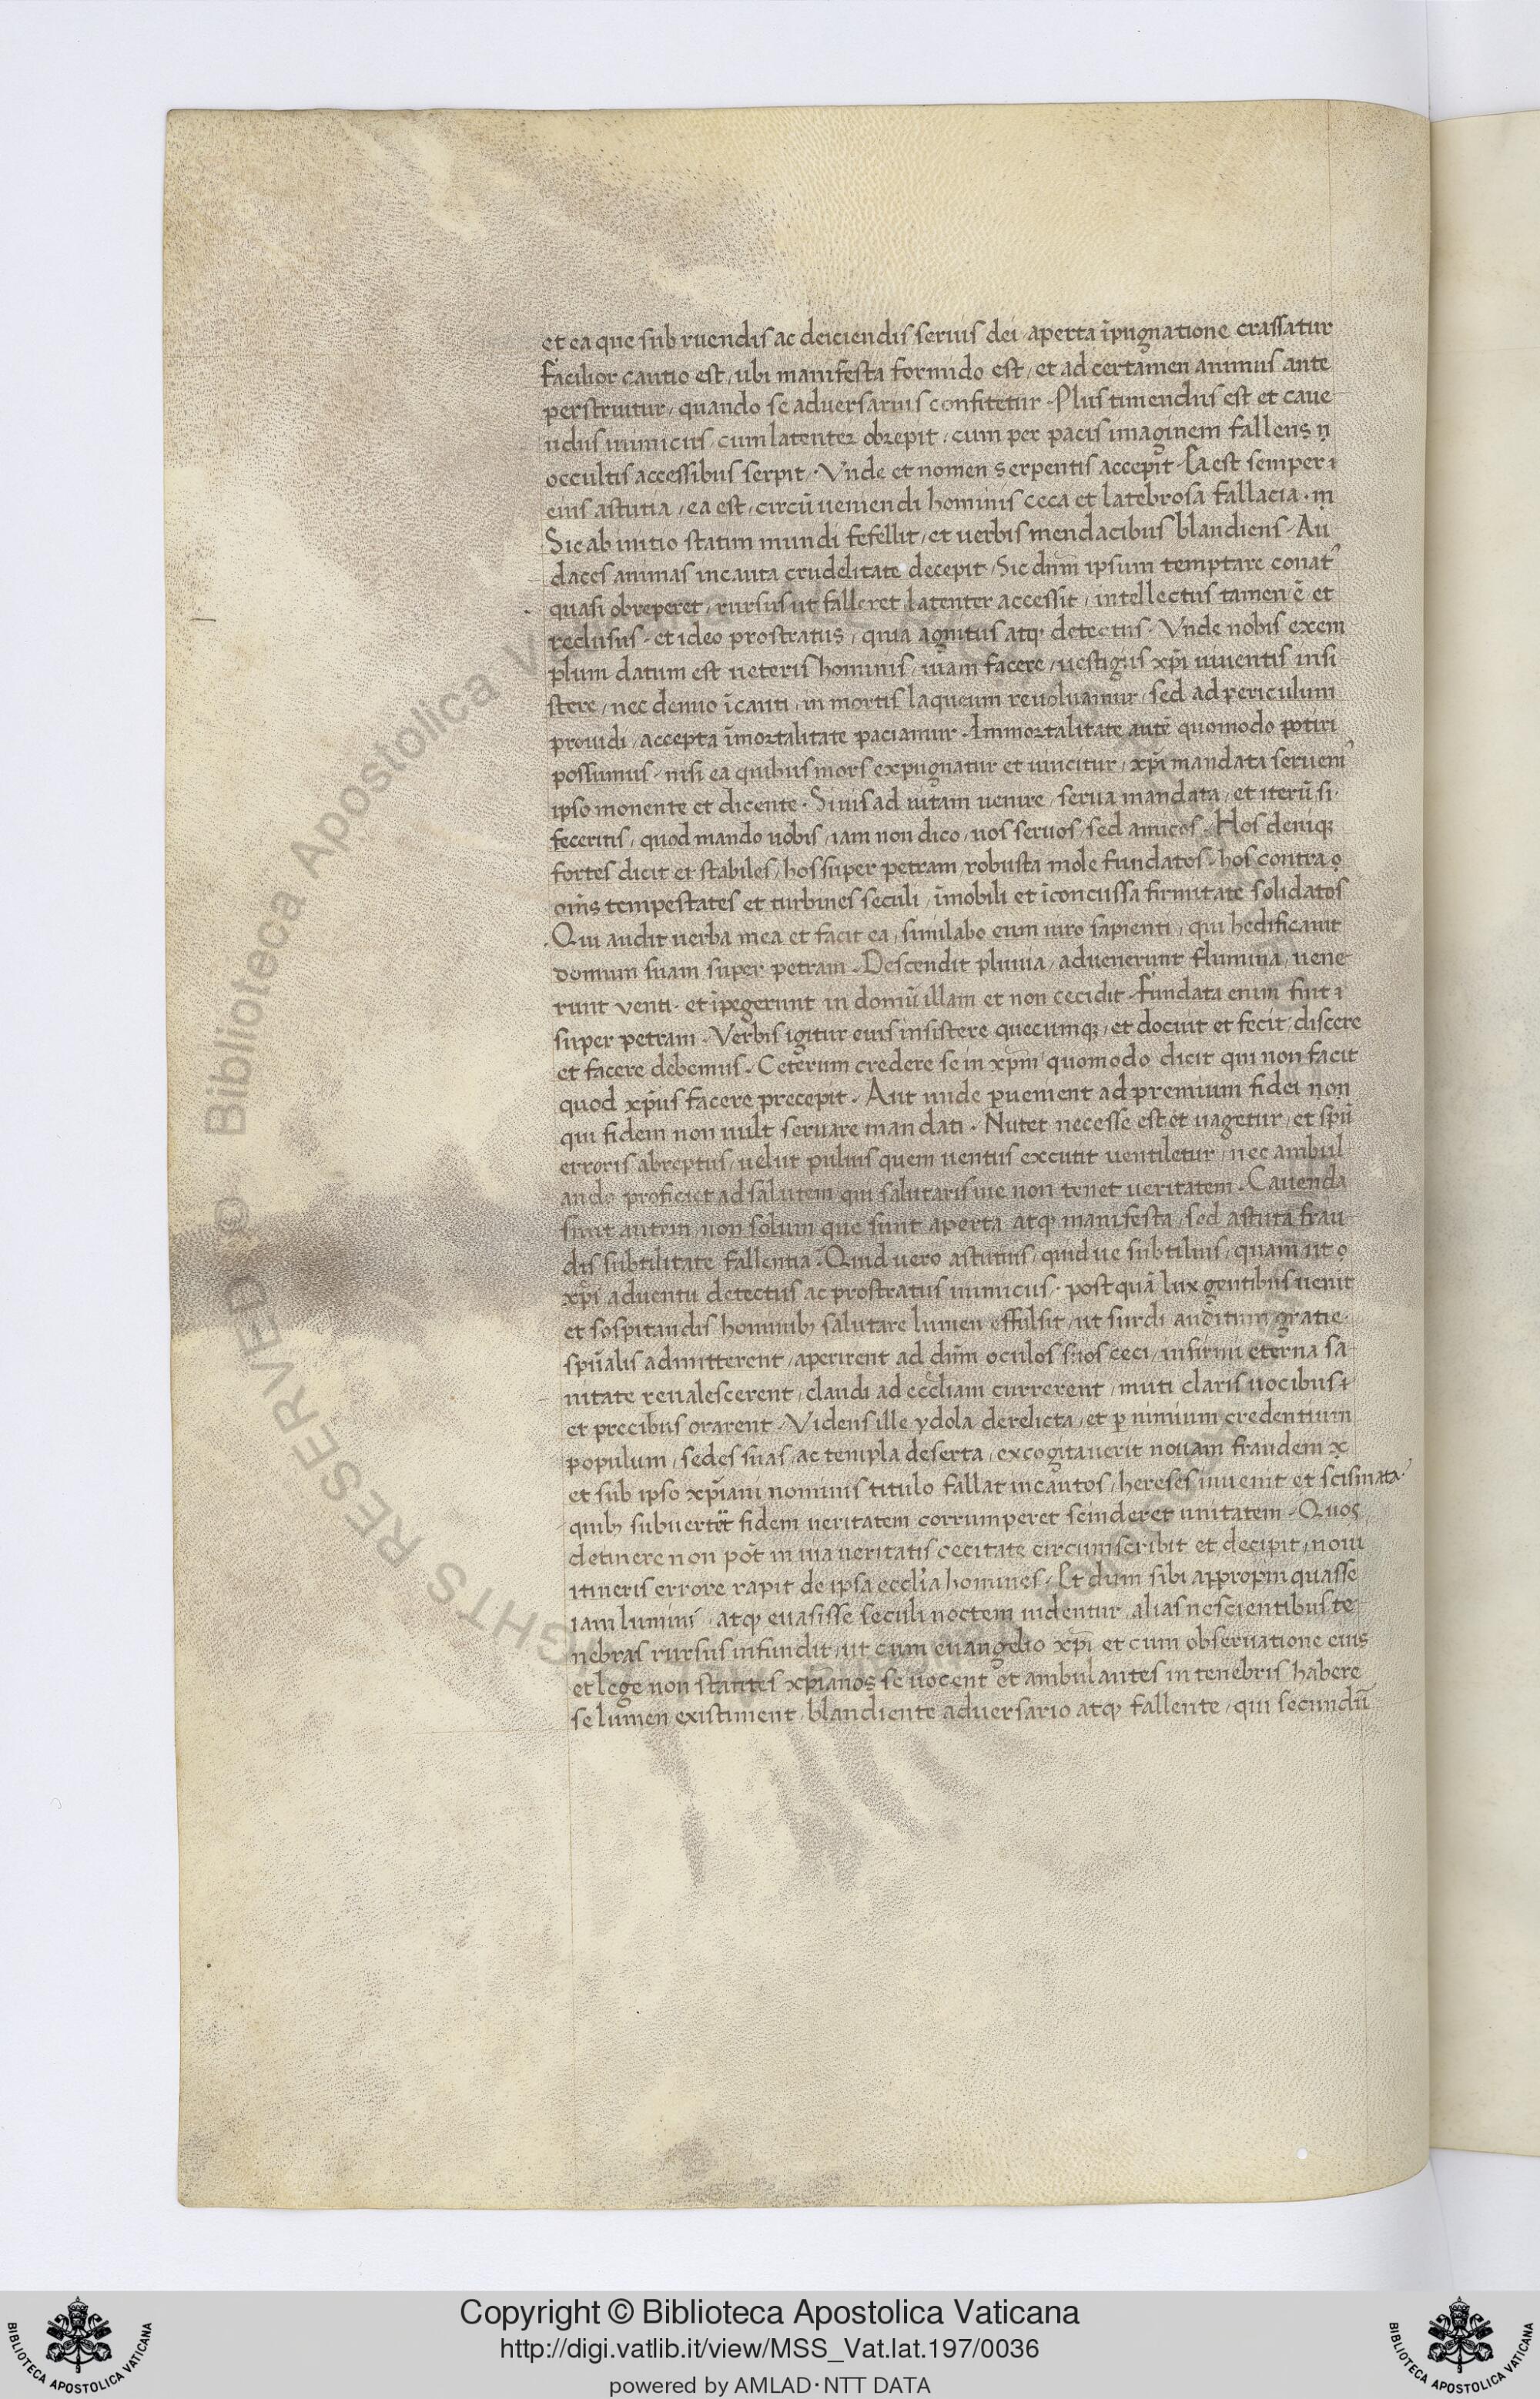 et ea que sub ruendis ac deiciendis seruis dei aperta ĩpugnatione crassatur
facilior cautio est, ubi manifesta formido est, et ad certamen animus ante
perstruitur, quando se adversarius confitetur. Plus timendus est et caue
ndus inimicus, cum latenter obrepit, cum per pacis imaginem fallens
occultis accessibus serpit. Vnde et nomen serpentis accepit. Ea est semper
eius astutia, ea est, circũ veniendi hominis ceca et latebrosa fallacia.
Sic ab initio statim mundi fefellit, et uerbis mendacibus blandiens. Au
daces animas incauta crudelitate decepit, Sic dnm̃ ipsum temptare conat᾽
quasi obreperet, rursus ut falleret latenter accessit, intellectus tamen ẽ et
reclusus. et ideo prostratus, quia agnitus atq; detectus. Vnde nobis exem
plum datum est ueteris hominis, uiam facere, uestigiis xp̃i uiuentis insi
stere, nec denuo ĩcauti, in mortis laqueum reuoluamur, sed ad periculum
prouidi, accepta ĩmortalitate paciamur. Immortalitate autẽ quomodo potiri
possumus. nisi ea quibus mors expugnatur et uincitur, xp̃i mandata seruem᾽
ipso monente et dicente. Si uis ad uitam uenire, serua mandata, et iterũ si.
feceritis, quod mando uobis, iam non dico, uos seruos, sed amicos. Hos deniq;
fortes dicit et stabiles, hos super petram robusta mole fundatos. hos contra
om̃s tempestates et turbines seculi, ĩmobili et ĩconcussa firmitate solidatos
Qui audit uerba mea et facit ea, similabo eum uiro sapienti, qui hedificauit
domum suam super petram. Descendit pluuia, aduenerunt flumina, uene
runt venti. et ĩpegerunt in domũ illam et non cecidit. fundata enim fuit
super petram. Verbis igitur eius insistere quecumq;, et docuit et fecit, discere
et facere debemus. Ceterum credere se in xp̃m quomodo dicit qui non facit
quod xp̃us facere precepit. Aut unde peruenient ad premium fidei non
qui fidem non uult seruare mandati. Nutet necesse est et uagetur, et sp̃ũ
erroris abreptus, uelut puluis quem uentus excutit uentiletur, nec ambul
ando proficiet ad salutem qui salutaris uie non tenet ueritatem. Cauenda
sunt autem non solum que sunt aperta atq; manifesta, sed astuta frau
dis subtilitate fallentia. Quid uero astutius, quid ue subtilius, quam ut
xp̃i aduentu detectus ac prostratus inimicus. postquã lux gentibus uenit
et sospitandis hominib; salutare lumen effulsit, ut surdi auditum gratie.
spũalis admitterent, aperirent ad dñm oculos suos ceci, infirmi eterna sa
nitate reualescerent, claudi ad eccl̃iam currerent, muti claris uocibus
et precibus orarent. Videns ille ydola derelicta, et per nimium credentium
populum, sedes suas, ac templa deserta, excogitauerit nouam fraudem
et sub ipso xp̃iani nominis titulo fallat incautos, hereses inuenit et scismata.
quib; subverteret fidem ueritatem corrumperet scinderet unitatem. Quos
detinere non põt in uia ueritatis cecitate circumscribit et decipit, noui
itineris errore rapit de ipsa eccl̃ia homines. Et dum sibi appropinquasse
iam lumini, atq; euasisse seculi noctem uidentur, alias nescientibus te
nebras rursus infundit, ut cum euangelio xp̃i et cum obseruatione eius
et lege non stantes xp̃ianos se uocent et ambulantes in tenebris habere
se lumen existiment, blandiente aduersario atq; fallente, qui secundũ
© Biblioteca Apostolica Vaticana
RIGHTS RESERVED
Copyright © Biblioteca Apostolica Vaticana
http://digi.vatlib.it/view/MSS_Vat.lat.197/0036
powered by AMLAD·NTT DATA
BIBLIOTECA APOSTOLICA VATICANA
BIBLIOTECA APOSTOLICA VATICANA